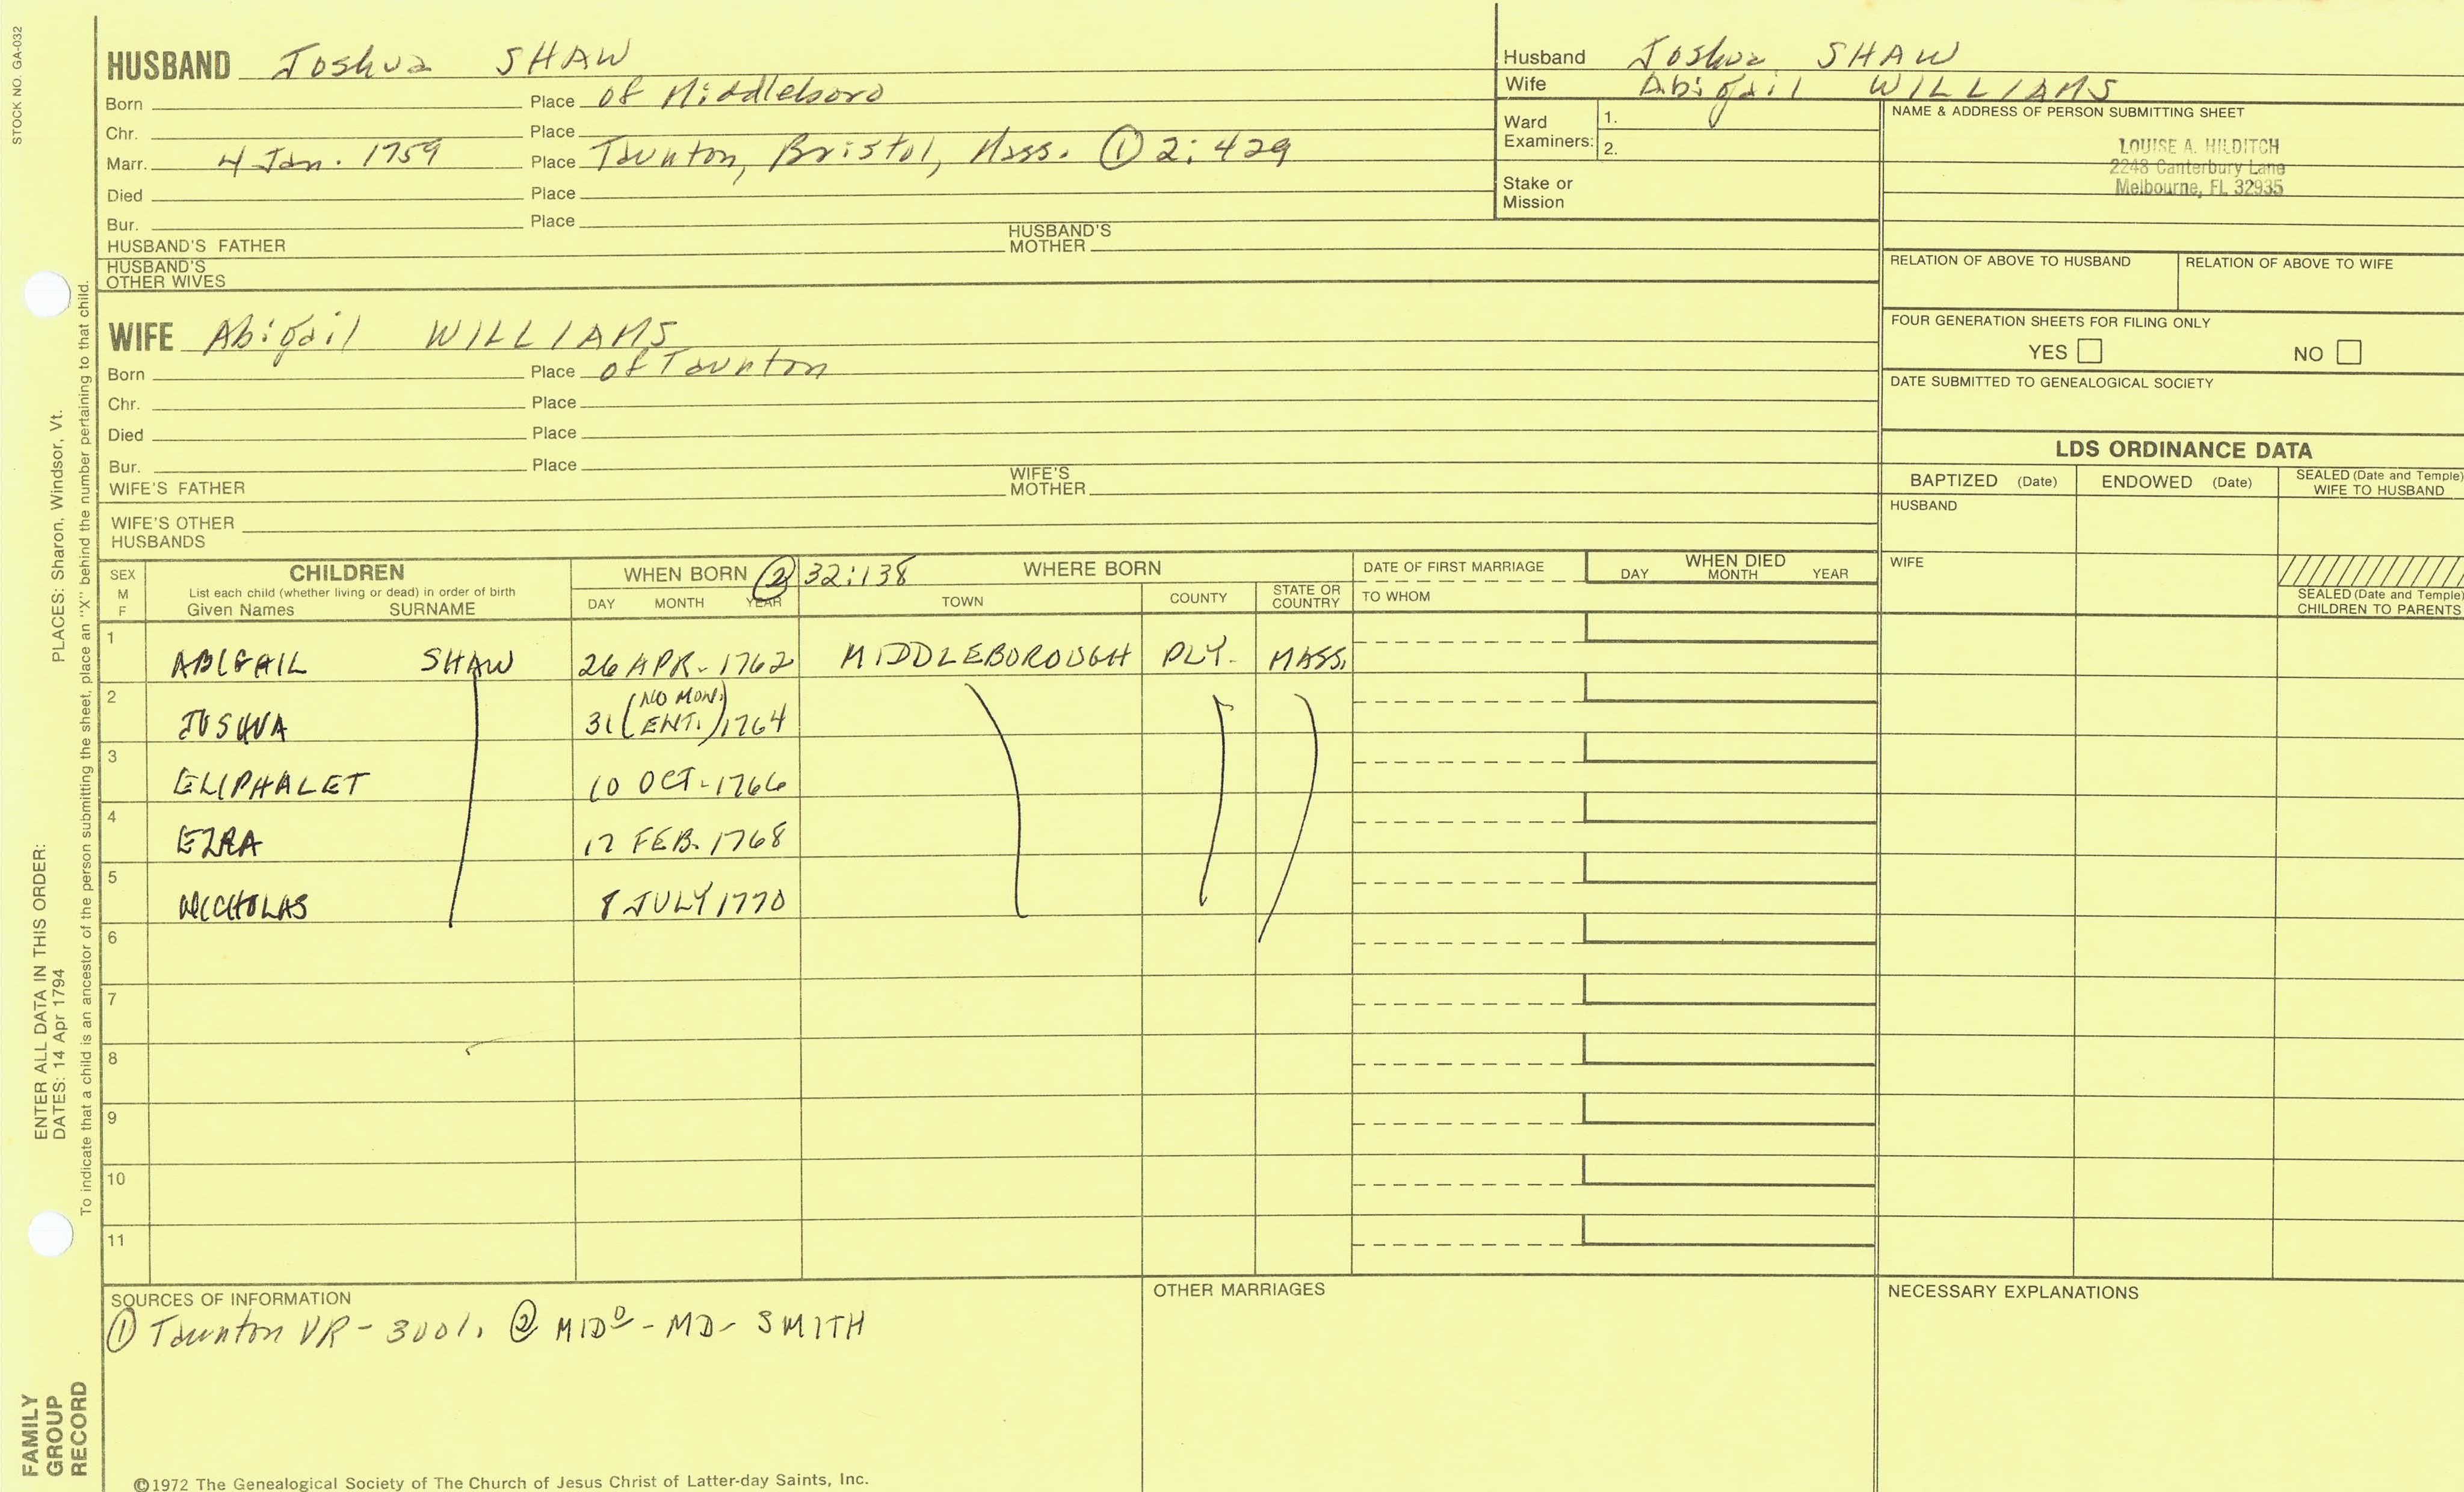 STOCK NO. GA-032
HUSBAND Joshua SHAW
Born Place of Middleboro
Chr. Place
Marr. 4 Jan. 1759 Place Taunton, Bristol, Mass. ① 2:429
Died Place
Bur. Place
HUSBAND'S FATHER HUSBAND'S MOTHER
HUSBAND'S OTHER WIVES
Husband Joshua SHAW
Wife Abigail WILLIAMS
Ward Examiners: 1.
2.
Stake or Mission
NAME & ADDRESS OF PERSON SUBMITTING SHEET
LOUISE A. HILDITCH
2248 Canterbury Lane
Melbourne, FL 32935
RELATION OF ABOVE TO HUSBAND RELATION OF ABOVE TO WIFE
FOUR GENERATION SHEETS FOR FILING ONLY
YES NO
DATE SUBMITTED TO GENEALOGICAL SOCIETY
WIFE Abigail WILLIAMS
Born Place of Taunton
Chr. Place
Died Place
Bur. Place
WIFE'S FATHER WIFE'S MOTHER
WIFE'S OTHER HUSBANDS
LDS ORDINANCE DATA
BAPTIZED (Date) ENDOWED (Date) SEALED (Date and Temple) WIFE TO HUSBAND
HUSBAND
WIFE
SEALED (Date and Temple) CHILDREN TO PARENTS
SEX M F CHILDREN WHEN BORN ② 32:138 WHERE BORN DATE OF FIRST MARRIAGE WHEN DIED
List each child (whether living or dead) in order of birth
Given Names SURNAME DAY MONTH YEAR TOWN COUNTY STATE OR COUNTRY TO WHOM DAY MONTH YEAR
1 ABIGAIL SHAW 26 APR. 1762 MIDDLEBOROUGH PLY. MASS.
2 JOSHUA 31 (NO MON. ENT.) 1764
3 ELIPHALET 10 OCT. 1766
4 EZRA 12 FEB. 1768
5 NICHOLAS 8 JULY 1770
6
7
8
9
10
11
SOURCES OF INFORMATION
① Taunton VR - 3001. ② MIDº - MD - SMITH
OTHER MARRIAGES
NECESSARY EXPLANATIONS
©1972 The Genealogical Society of The Church of Jesus Christ of Latter-day Saints, Inc.
FAMILY GROUP RECORD
ENTER ALL DATA IN THIS ORDER:
DATES: 14 Apr 1794 PLACES: Sharon, Windsor, Vt.
To indicate that a child is an ancestor of the person submitting the sheet, place an "X" behind the number pertaining to that child.